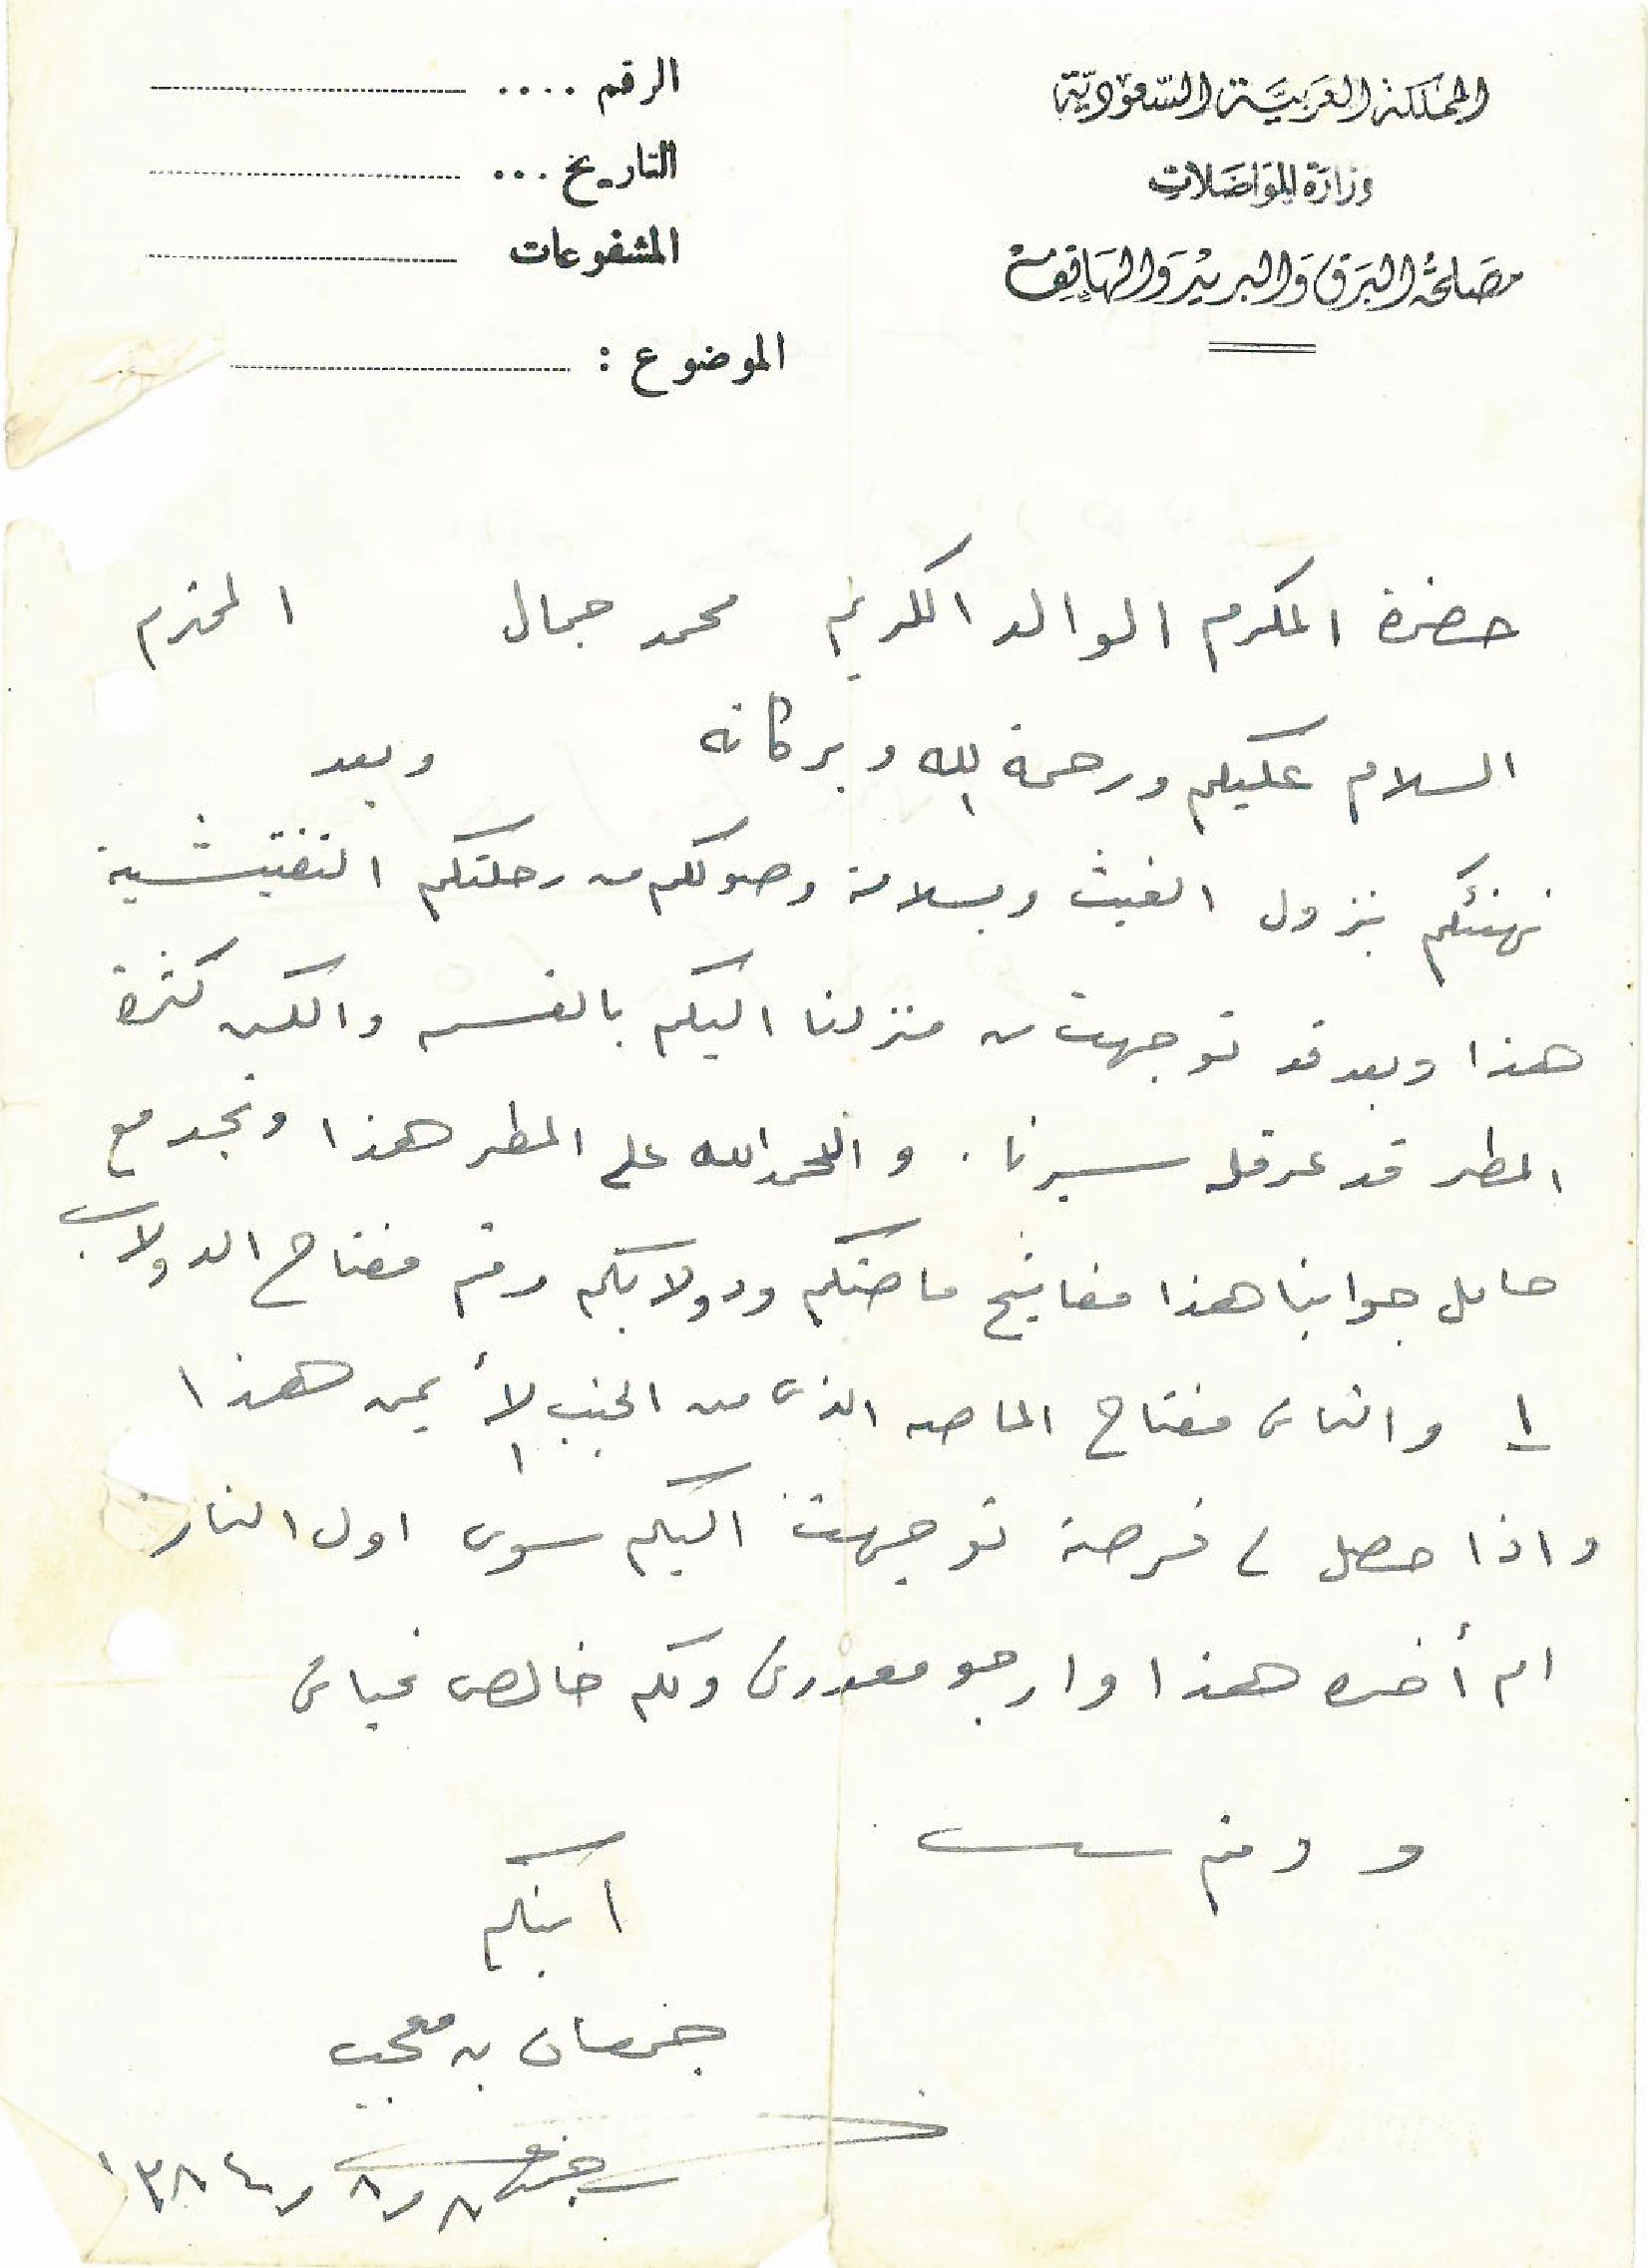 المملكة العربية السعودية
وزارة المواصلات
مصلحة البرق والبريد والهاتف
الرقم ....
التاريخ ...
المشفوعات
الموضوع :
حضرة المكرم الوالد الكريم محمد جمال المحترم
السلام عليكم ورحمة الله وبركاته وبعد
نهنئكم بنزول الغيث وبسلامة وصولكم من رحلتكم التفتيشية
هذا وبعد قد توجهت من منزلنا اليكم بالقسم والكن كثرة
المطر قد عرقلة سيرنا . والحمد الله على المطر هذا وتجد مع
حامل جوابنا هذا مفاتيح ماصتكم ودولابكم رقم مفتاح الدولاب
١ والثاني مفتاح الماصه الذي من الجنب الأيمن هذا
واذا حصل لي فرصة توجهت اليكم سوى اول النهار
ام أخره هذا وارجو معذرتي ولكم خالص تحياتي
و دمتم
ابنكم
جمعان بن معجب
٨ر٨ر١٣٨٤